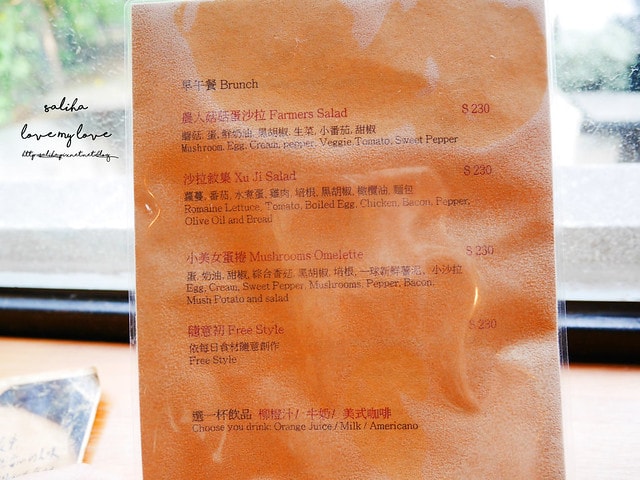 saliha
love my love
早午餐 Brunch
農人菇菇蛋沙拉 Farmers Salad $ 230
蘑菇, 蛋, 鮮奶油, 黑胡椒, 生菜, 小番茄, 甜椒
Mushroom, Egg, Cream, pepper, Veggie, Tomato, Sweet Pepper
沙拉敘集 Xu Ji Salad $ 230
蘿蔓, 番茄, 水煮蛋, 雞肉, 培根, 黑胡椒, 橄欖油, 麵包
Romaine Lettuce, Tomato, Boiled Egg, Chicken, Bacon, Pepper,
Olive Oil and Bread
小美女蛋捲 Mushrooms Omelette $ 230
蛋, 奶油, 甜椒, 綜合香菇, 黑胡椒, 培根, 一球新鮮薯泥, 小沙拉
Egg, Cream, Sweet Pepper, Mushrooms, Pepper, Bacon,
Mush Potato and salad
隨意初 Free Style $ 230
依每日食材隨意創作
Free Style
選一杯飲品 柳橙汁 / 牛奶 / 美式咖啡
Choose you drink: Orange Juice / Milk / Americano